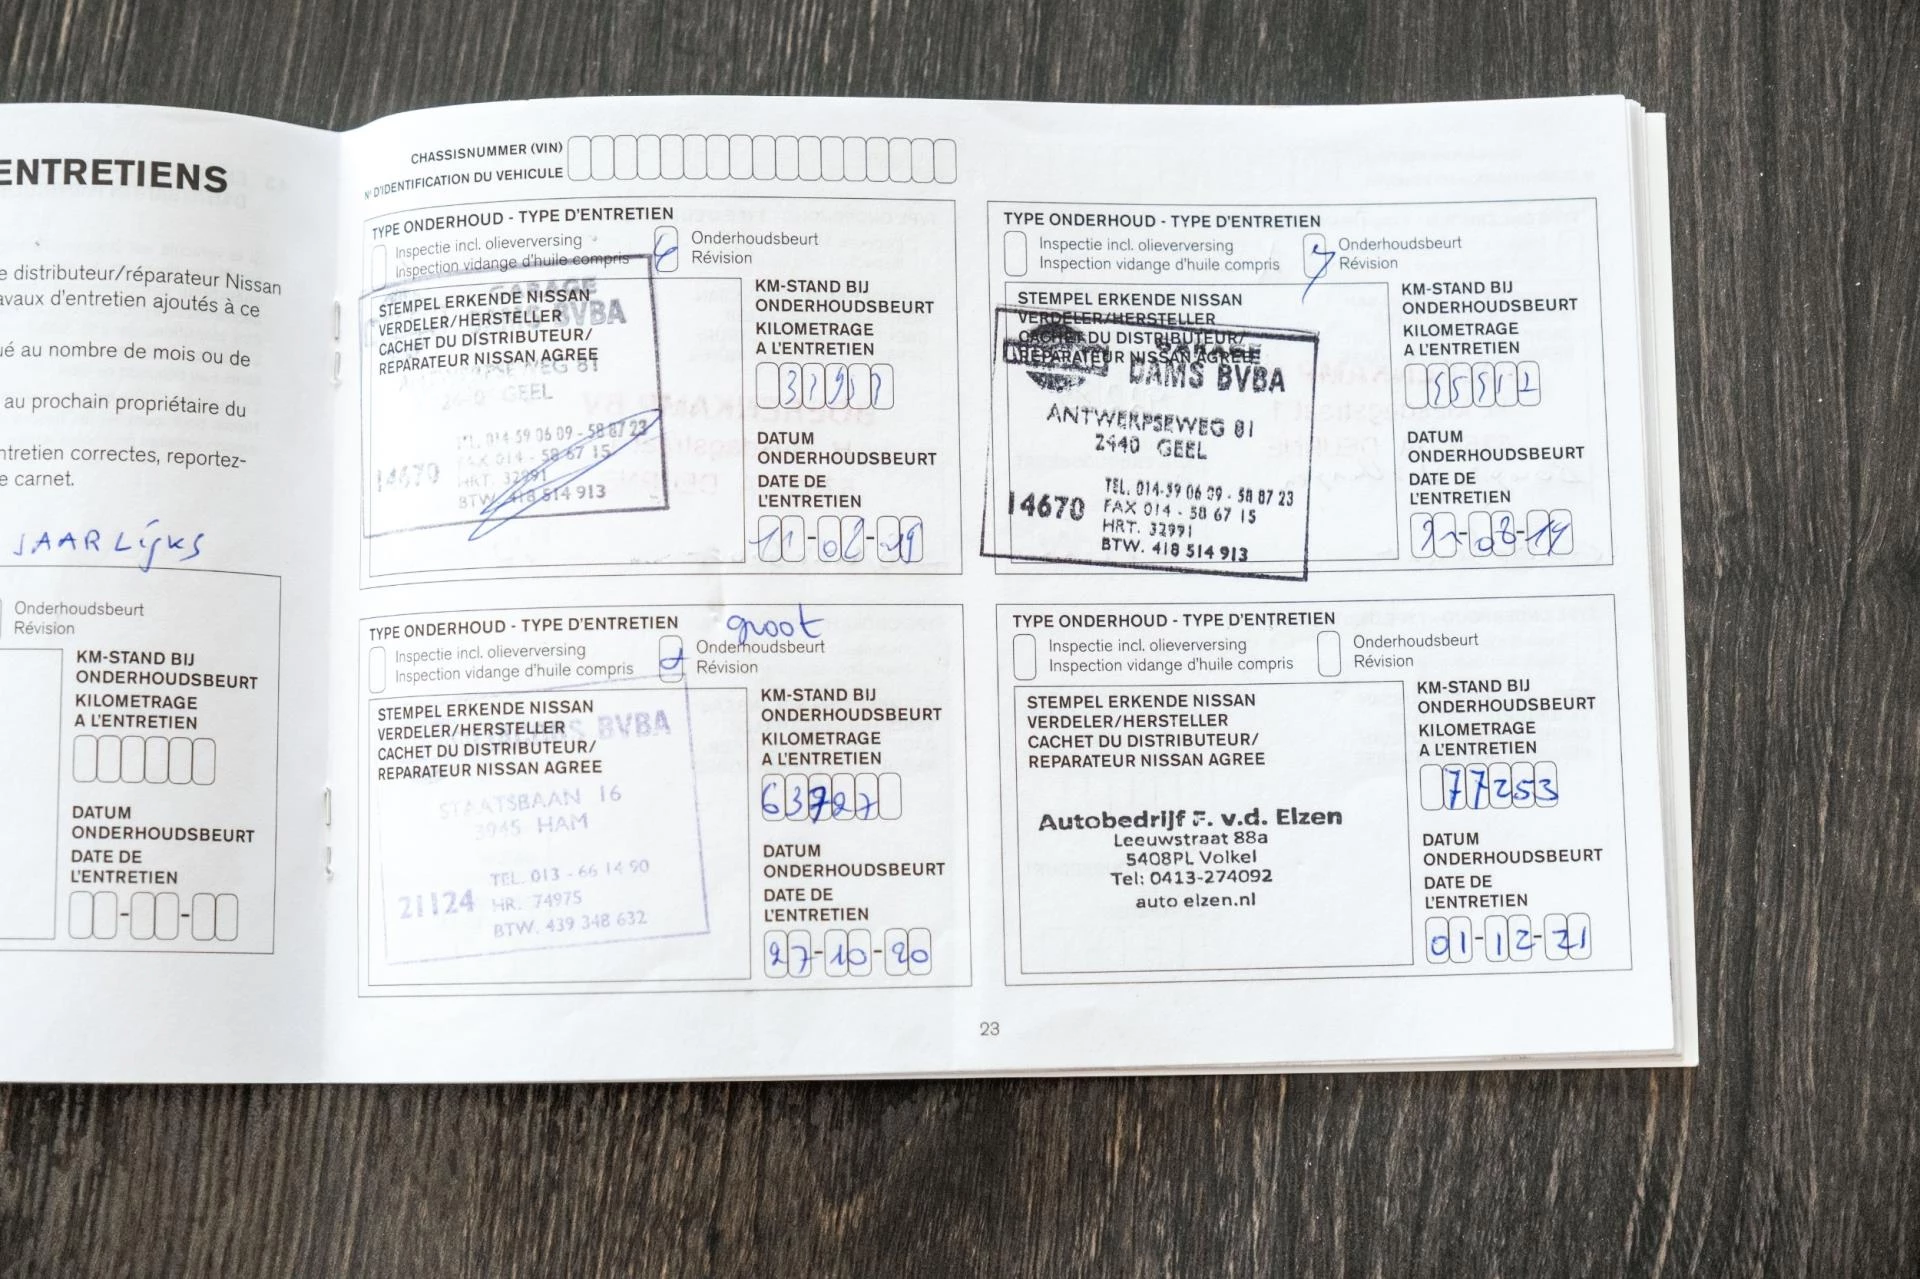 ENTRETIENS
e distributeur/réparateur Nissan
avaux d'entretien ajoutés à ce
ué au nombre de mois ou de
au prochain propriétaire du
ntretien correctes, reportez-
e carnet.
JAARLijks
Onderhoudsbeurt
Révision
KM-STAND BIJ
ONDERHOUDSBEURT
KILOMETRAGE
A L'ENTRETIEN
DATUM
ONDERHOUDSBEURT
DATE DE
L'ENTRETIEN
CHASSISNUMMER (VIN)
N° D'IDENTIFICATION DU VEHICULE
TYPE ONDERHOUD - TYPE D'ENTRETIEN
Inspectie incl. olieverversing
Inspection vidange d'huile compris
Onderhoudsbeurt
Révision
STEMPEL ERKENDE NISSAN
VERDELER/HERSTELLER
CACHET DU DISTRIBUTEUR/
REPARATEUR NISSAN AGREE
GARAGE
DAMS BVBA
ANTWERPSEWEG 81
2440 GEEL
TEL. 014-59 06 09 - 58 87 23
FAX 014 - 58 67 15
14670
HRT. 32991
BTW. 418 514 913
KM-STAND BIJ
ONDERHOUDSBEURT
KILOMETRAGE
A L'ENTRETIEN
DATUM
ONDERHOUDSBEURT
DATE DE
L'ENTRETIEN
TYPE ONDERHOUD - TYPE D'ENTRETIEN
Inspectie incl. olieverversing
Inspection vidange d'huile compris
Onderhoudsbeurt
Révision
STEMPEL ERKENDE NISSAN
VERDELER/HERSTELLER
CACHET DU DISTRIBUTEUR/
REPARATEUR NISSAN AGREE
GARAGE
DAMS BVBA
ANTWERPSEWEG 81
2440 GEEL
TEL. 014-59 06 09 - 58 87 23
14670
FAX 014 - 58 67 15
HRT. 32991
BTW. 418 514 913
KM-STAND BIJ
ONDERHOUDSBEURT
KILOMETRAGE
A L'ENTRETIEN
DATUM
ONDERHOUDSBEURT
DATE DE
L'ENTRETIEN
TYPE ONDERHOUD - TYPE D'ENTRETIEN
groot
Inspectie incl. olieverversing
Inspection vidange d'huile compris
Onderhoudsbeurt
Révision
STEMPEL ERKENDE NISSAN
VERDELER/HERSTELLER
CACHET DU DISTRIBUTEUR/
REPARATEUR NISSAN AGREE
DAMS BVBA
STAATSBAAN 16
3945 HAM
TEL. 013 - 66 14 90
21124
HR. 74975
BTW. 439 348 632
KM-STAND BIJ
ONDERHOUDSBEURT
KILOMETRAGE
A L'ENTRETIEN
63727
DATUM
ONDERHOUDSBEURT
DATE DE
L'ENTRETIEN
27-10-20
TYPE ONDERHOUD - TYPE D'ENTRETIEN
Inspectie incl. olieverversing
Inspection vidange d'huile compris
Onderhoudsbeurt
Révision
STEMPEL ERKENDE NISSAN
VERDELER/HERSTELLER
CACHET DU DISTRIBUTEUR/
REPARATEUR NISSAN AGREE
Autobedrijf F. v.d. Elzen
Leeuwstraat 88a
5408PL Volkel
Tel: 0413-274092
auto elzen.nl
KM-STAND BIJ
ONDERHOUDSBEURT
KILOMETRAGE
A L'ENTRETIEN
77253
DATUM
ONDERHOUDSBEURT
DATE DE
L'ENTRETIEN
01-12-21
23